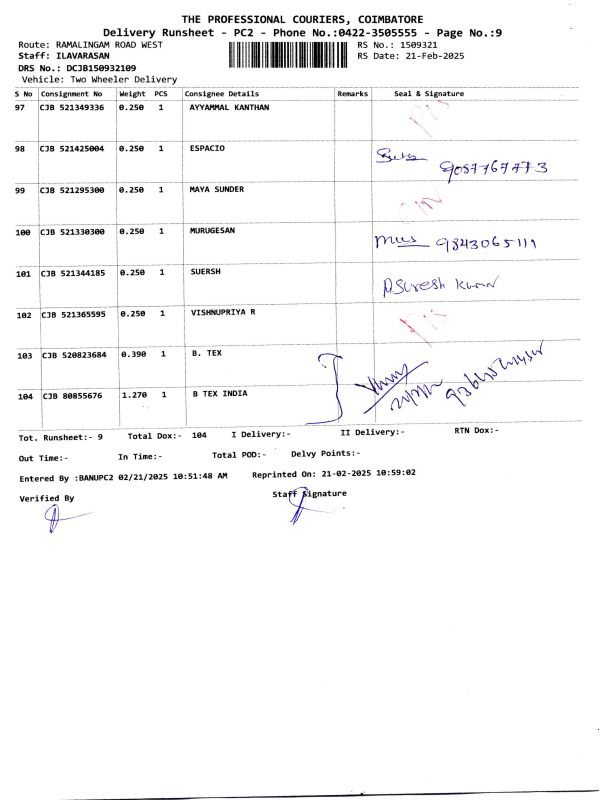 THE PROFESSIONAL COURIERS, COIMBATORE
Delivery Runsheet - PC2 - Phone No.:0422-3505555 - Page No.:9
Route: RAMALINGAM ROAD WEST RS No.: 1509321
Staff: ILAVARASAN RS Date: 21-Feb-2025
DRS No.: DCJB150932109
Vehicle: Two Wheeler Delivery
S No Consignment No Weight PCS Consignee Details Remarks Seal & Signature
97 CJB 521349336 0.250 1 AYYAMMAL KANTHAN
98 CJB 521425004 0.250 1 ESPACIO
9087767773
99 CJB 521295300 0.250 1 MAYA SUNDER
100 CJB 521330300 0.250 1 MURUGESAN
9843065111
101 CJB 521344185 0.250 1 SUERSH
P Suresh Kumar
102 CJB 521365595 0.250 1 VISHNUPRIYA R
103 CJB 520823684 0.390 1 B. TEX
104 CJB 80855676 1.270 1 B TEX INDIA
Tot. Runsheet:- 9 Total Dox:- 104 I Delivery:- II Delivery:- RTN Dox:-
Out Time:- In Time:- Total POD:- Delvy Points:-
Entered By :BANUPC2 02/21/2025 10:51:48 AM Reprinted On: 21-02-2025 10:59:02
Verified By Staff Signature